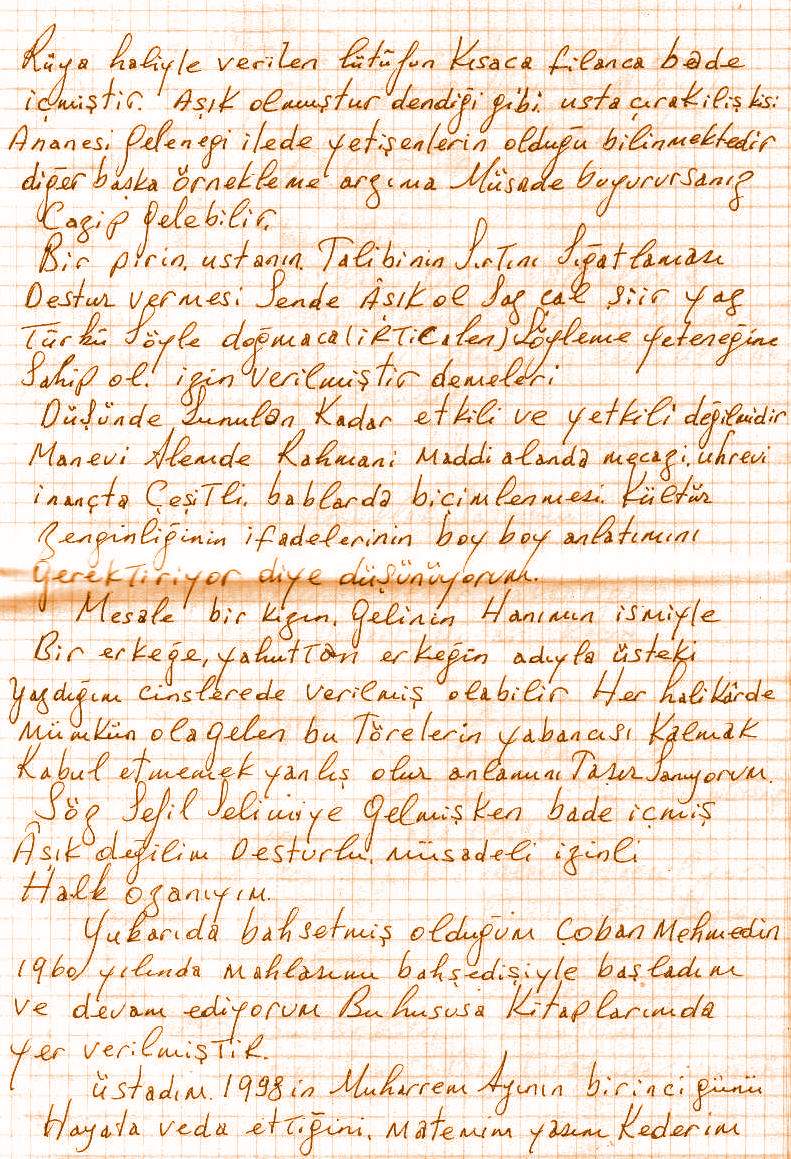 Rüya haliyle verilen lütüfun Kısaca filanca bade
içmiştir. Aşık olmuştur dendiği gibi. usta çırak ilişkisi
Ananesi Geleneği ilede yetişenlerin olduğu bilinmektedir
diğer başka örnekleme arzıma Müsade buyurursanız
Cazip Gelebilir.
Bir pirin, ustanın. Talibinin Sırtını Sığatlaması
Destur vermesi Sende Âşık ol Saz çal Şiir yaz
Türkü Söyle doğmaca (irticalen) Söyleme yeteneğine
Sahip ol. izin verilmiştir demeleri
Düşünde Sunulan Kadar etkili ve yetkili değilmidir
Manevi Alemde Rahmani Maddi alanda mecazi, uhrevi
inançta Çeşitli. bablarda biçimlenmesi. Kültür
Zenginliğinin ifadelerinin boy boy anlatımını
Gerektiriyor diye düşünüyorum.
Mesale bir kızın, Gelinin Hanımın ismiyle
Bir erkeğe, yahuttan erkeğin adıyla üsteki
yazdığım cinslerede verilmiş olabilir Her halikârde
Mümkün ola Gelen bu Törelerin yabancısı Kalmak
Kabul etmemek yanlış olur anlamını Taşır Sanıyorum.
Söz Sefil Selimiye Gelmişken bade içmiş
Âşık değilim Desturlu. müsadeli izinli
Halk ozanıyım.
Yukarıda bahsetmiş olduğum Çoban Mehmedin
1960 yılında Mahlasımı bahşedişiyle başladım
ve devam ediyorum Bu hususa Kitaplarımda
yer verilmiştir.
üstadım. 1998 in Muharrem Ayının birinci günü
Hayata veda ettiğini. Matemim yasım Kederim